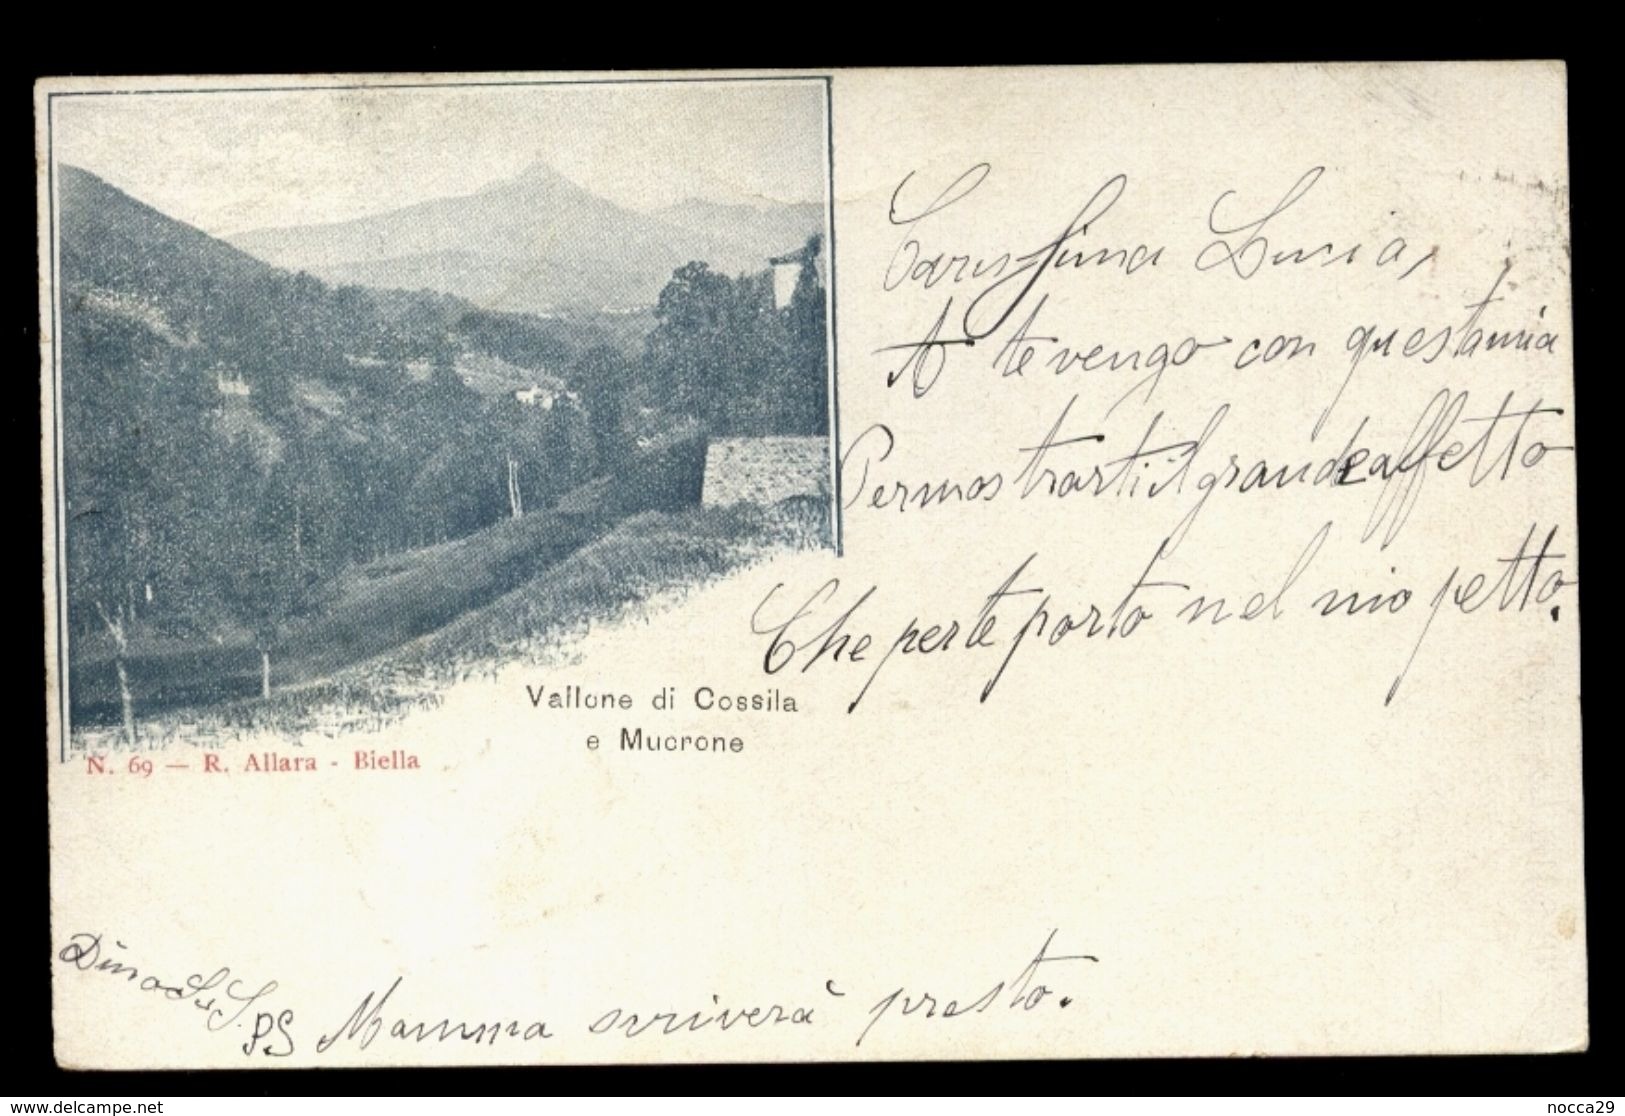 Carissima Lucia,
A te vengo con questa mia
Per mostrarti il grande affetto
Che per te porto nel mio petto.
Vallone di Cossila
e Mucrone
N. 69 — R. Allara - Biella
Dino
PS Mamma scriverà presto.
www.delcampe.net
nocca29